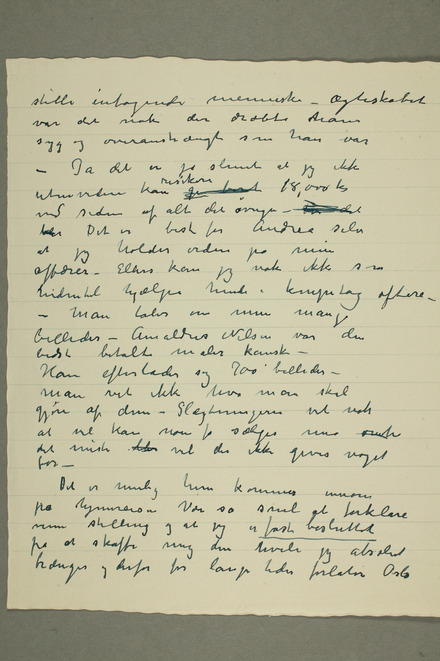 stille indtagende menneske – Ægteskabet
var det nok der dræbte ham
syg og overanstrængt som han var
– Ja det er jo slemt at jeg ikke
risikere
kan 18,000 kr
ved siden af alt det øvrige –
Det er best for Andrea selv
at jeg holder orden på mine
affærer – Ellers kan jeg nok ikke som
hidentil hjælpe hende i knipetag oftere –
– Man taler om mine mange
billeder – Amaldus Nielsen var den
bedst betalte maler kanske –
Han efterlader sig 700 billeder –
man vet ikke hva man skal
gjøre af dem – Slægtningerne vil nok
at vel kan nom få sælges men
det meste vil der ikke gives noget
for –
Det er mulig hun kommer innom
på Vær så snil at forklare
min stilling og at jeg er fast besluttet
på at skaffe mig den hvile jeg absolut
trænger og derfor for lange tider forlater Oslo